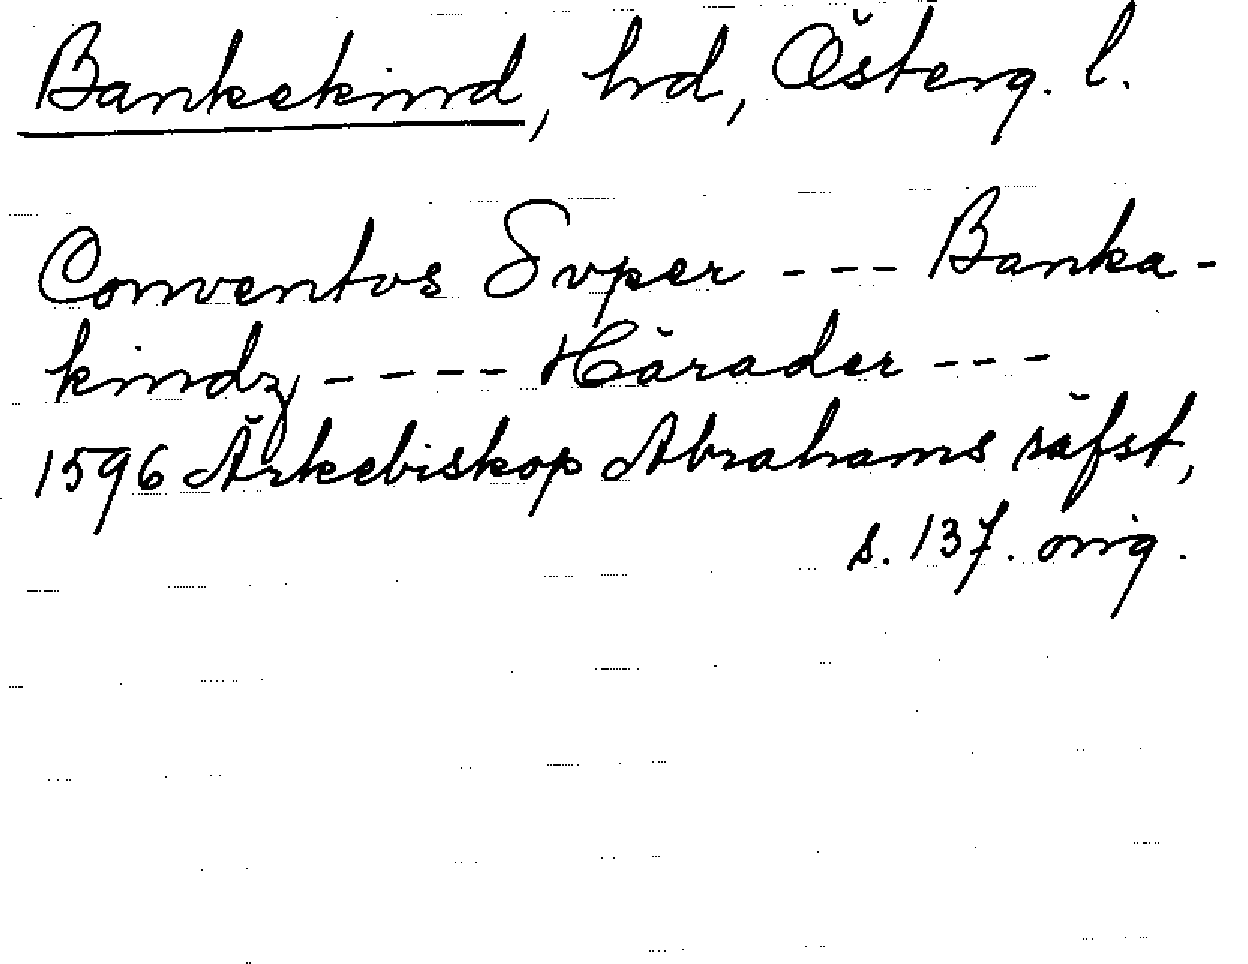 Bankekind, hd, Österg. l.
Conventvs Svper --- Banka-
kindz ---- Härader ---
1596 Ärkebiskop Abrahams räfst,
s. 137. orig.